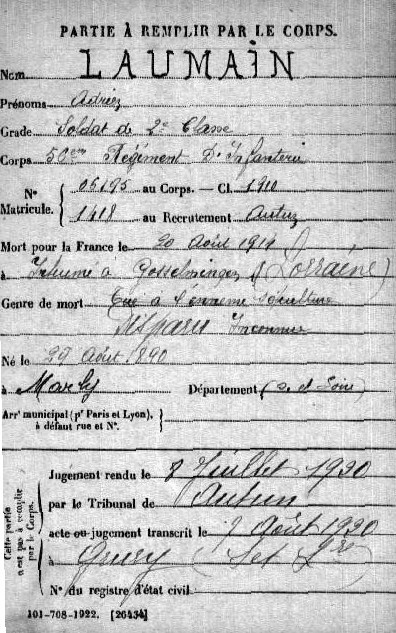 PARTIE À REMPLIR PAR LE CORPS.
Nom LAUMAIN
Prénoms Adrien
Grade Soldat de 2e Classe
Corps 56ème Régiment D'Infanterie
N° Matricule. 05195 au Corps. — Cl. 1910
1418 au Recrutement Autun
Mort pour la France le 20 Août 1914
à Inhumé à Gosselmingen (Lorraine)
Genre de mort Tué à l'ennemi Sépulture
Disparu Inconnue
Né le 29 Août 1890
à Marly Département (S. et Loire)
Arrt municipal (pr Paris et Lyon),
à défaut rue et N°.
Cette partie
n'est pas à remplir
par le Corps.
Jugement rendu le 8 Juillet 1920
par le Tribunal de Autun
acte ou jugement transcrit le 7 Août 1920
à Grury S et Lre
N° du registre d'état civil
101-708-1922. [26434]